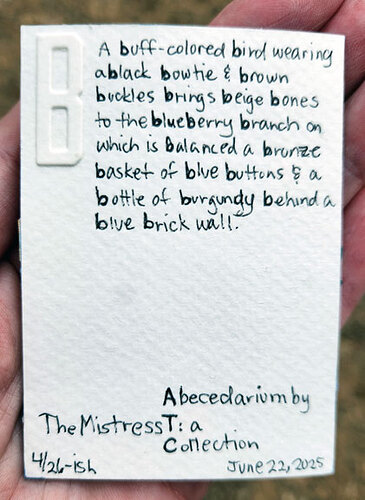 B
A buff-colored bird wearing
a black bowtie & brown
buckles brings beige bones
to the blueberry branch on
which is balanced a bronze
basket of blue buttons & a
bottle of burgundy behind a
blue brick wall.
Abecedarium by
The Mistress T: a
Collection
4/26-ish
June 22, 2025